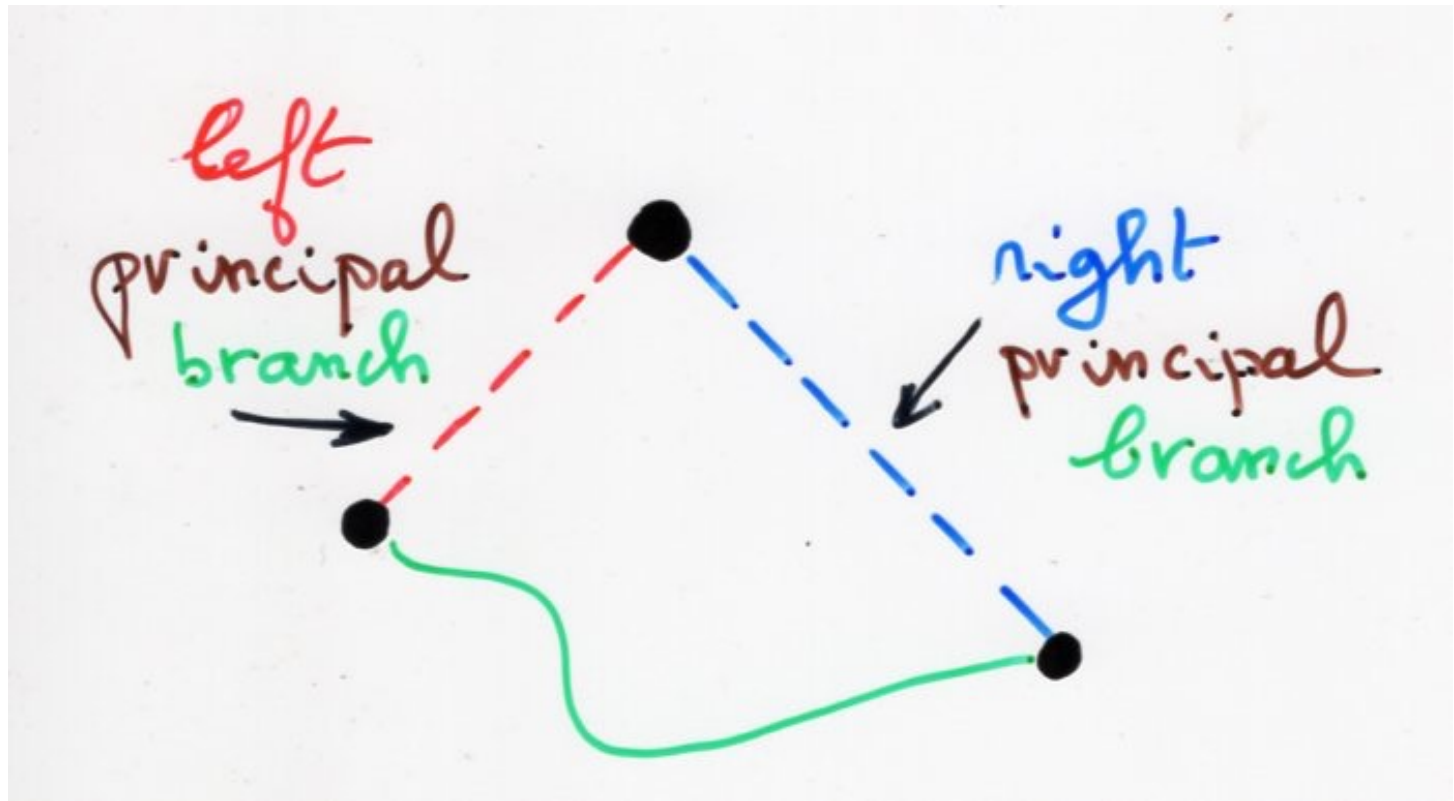 left
principal
branch
right
principal
branch